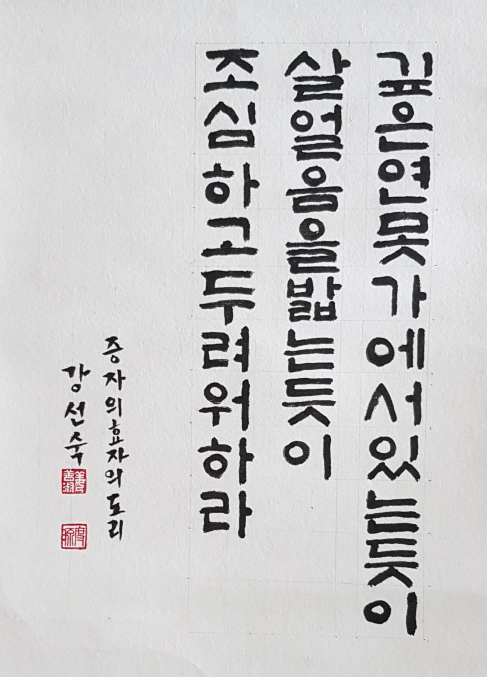 깊은연못가에서있는듯이
살얼음을밟는듯이
조심하고두려워하라
증자의효자의도리
강선숙